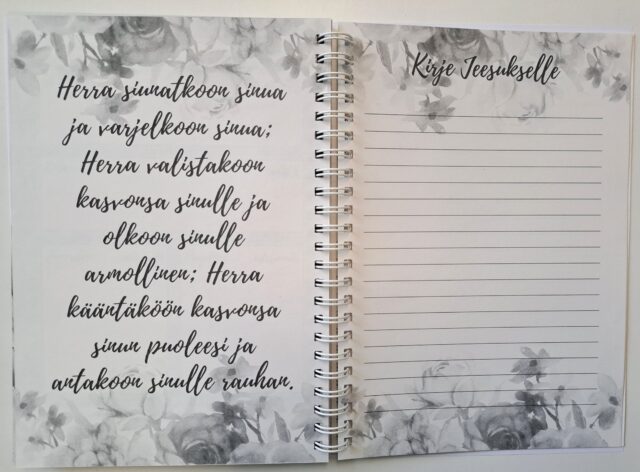 Herra siunatkoon sinua
ja varjelkoon sinua;
Herra valistakoon
kasvonsa sinulle ja
olkoon sinulle
armollinen; Herra
kääntäköön kasvonsa
sinun puoleesi ja
antakoon sinulle rauhan.
Kirje Jeesukselle